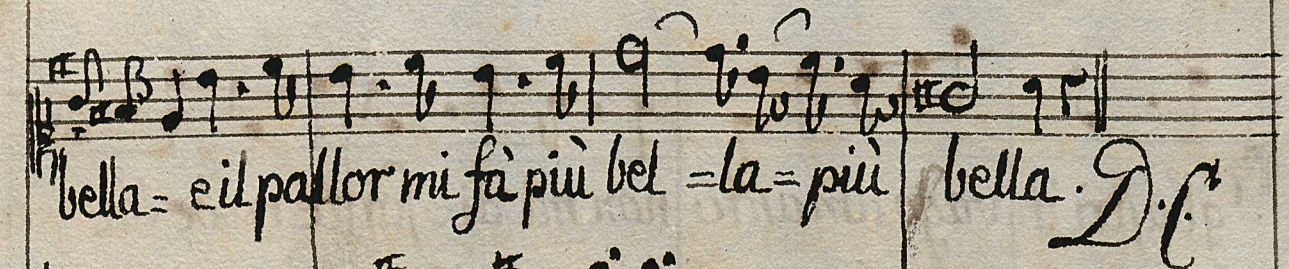 bella = e il pallor mi fà più bel = la = più bella. D.C